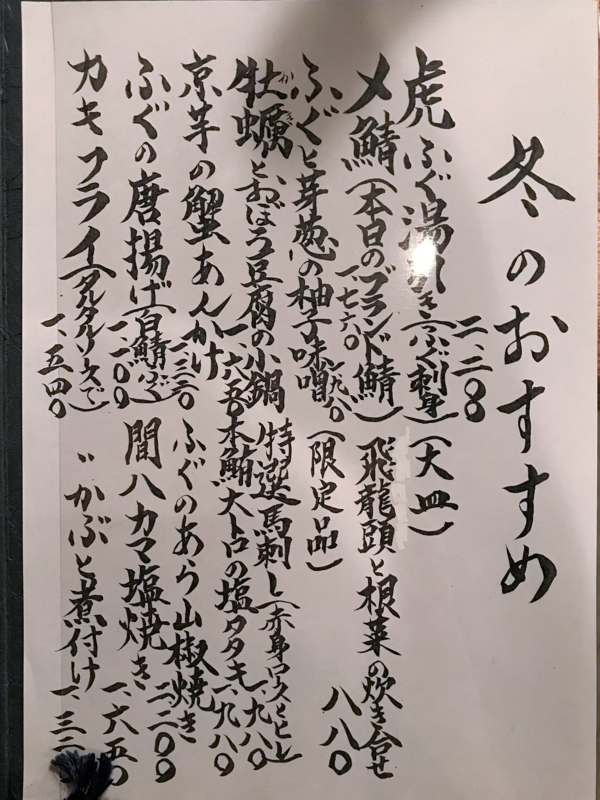 冬のおすすめ
虎ふぐ湯引き(ふぐ刺身)(大皿)
二、二〇〇
〆鯖(本日のブランド鯖)
一、七六〇
ふぐと芽葱の柚子味噌
一、九八〇
牡蠣とおぼろ豆腐の小鍋
一、六五〇
京芋の蟹あんかけ
一、三二〇
ふぐの唐揚げ(白鯖ふぐ)
一、二〇〇
カキフライ(タルタルソースで)
一、五四〇
飛龍頭と根菜の炊き合せ
八八〇
(限定品)
特選馬刺し(赤身ロースとヒレ)
一、九八〇
本鮪大トロの塩タタキ
一、九八〇
ふぐのあら山椒焼き
二、二〇〇
間八カマ塩焼き
一、六五〇
〃かぶと煮付け
一、三二